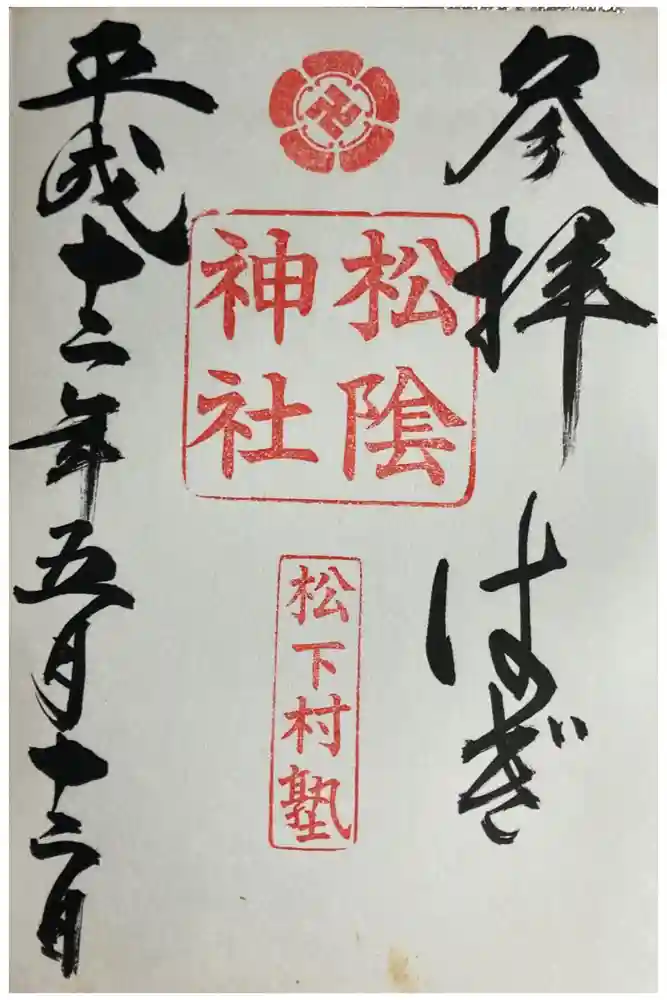 参拝 はぎ
松陰
神社
松下村塾
平成十二年五月十二日